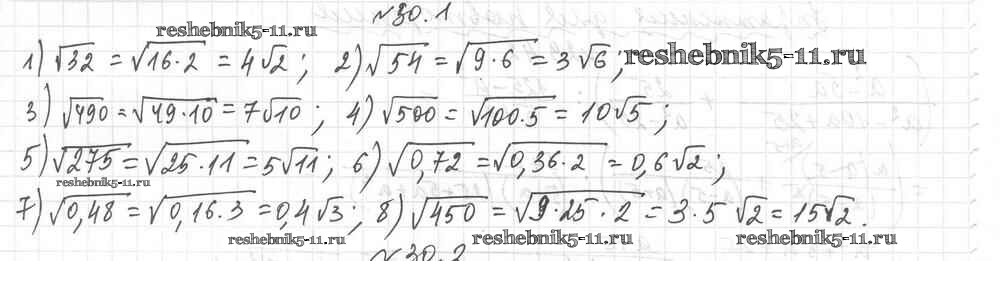 №30.1
reshebnik5-11.ru
1) √32 = √16·2 = 4√2; 2) √54 = √9·6 = 3√6; reshebnik5-11.ru
3) √490 = √49·10 = 7√10; 4) √500 = √100·5 = 10√5;
5) √275 = √25·11 = 5√11; 6) √0,72 = √0,36·2 = 0,6√2;
reshebnik5-11.ru
7) √0,48 = √0,16·3 = 0,4√3; 8) √450 = √9·25·2 = 3·5√2 = 15√2.
reshebnik5-11.ru reshebnik5-11.ru reshebnik5-11.ru
№30.2